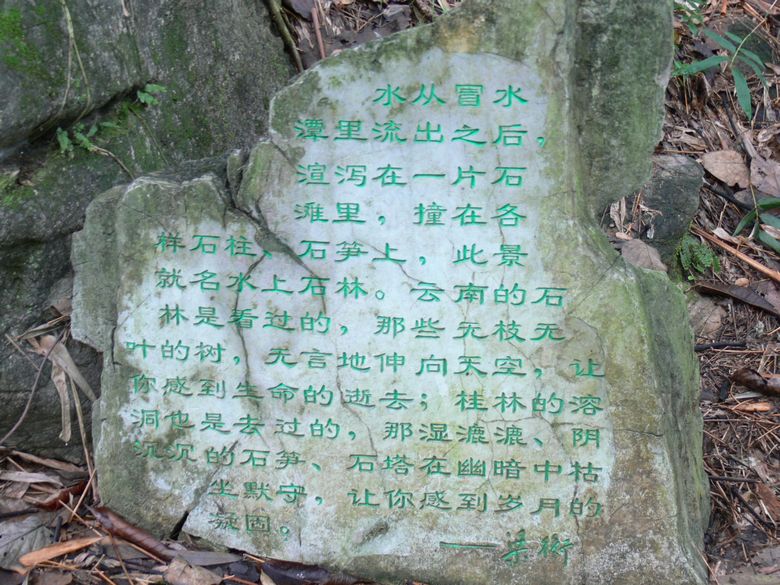 水从冒水
潭里流出之后，
渲泻在一片石
滩里，撞在各
样石柱、石笋上，此景
就名水上石林。云南的石
林是看过的，那些无枝无
叶的树，无言地伸向天空，让
你感到生命的逝去；桂林的溶
洞也是去过的，那湿漉漉、阴
沉沉的石笋、石塔在幽暗中枯
坐默守，让你感到岁月的
凝固。
——梁衡